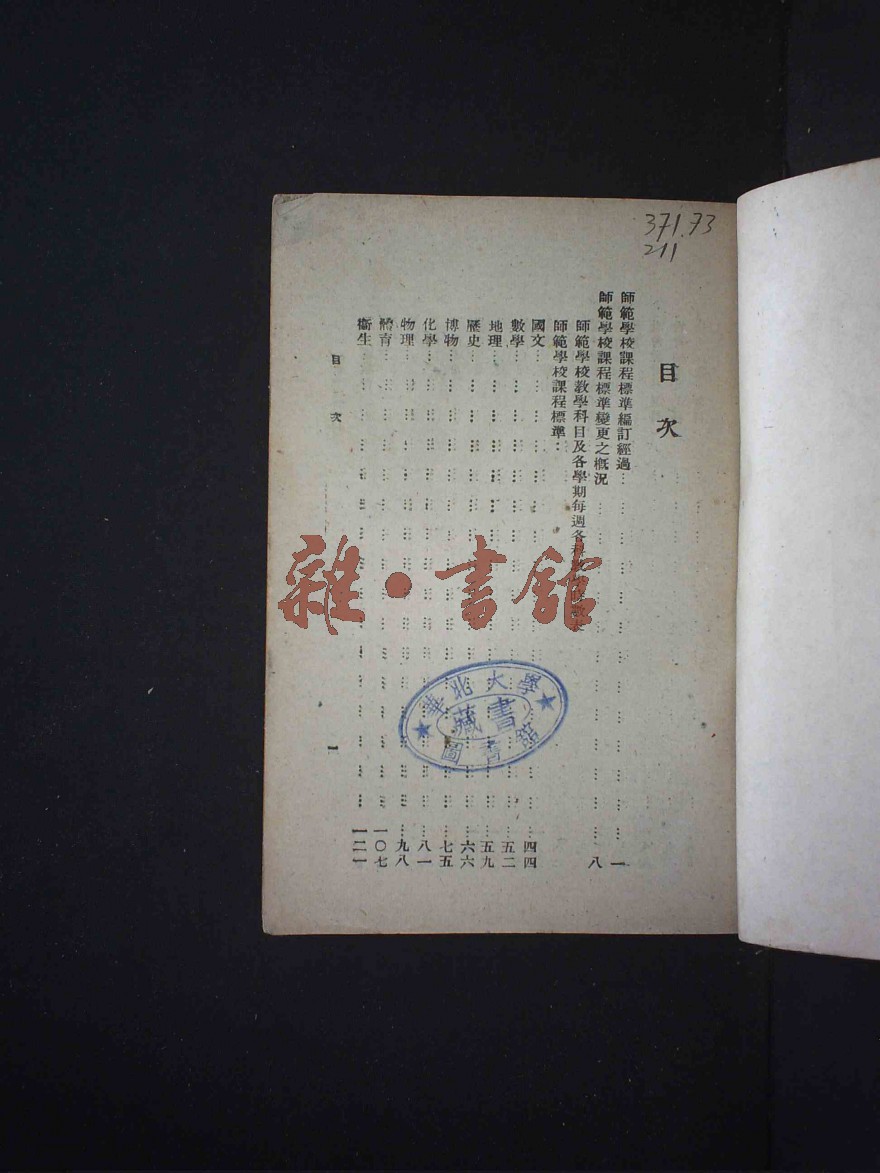 371.73
211
目次
師範學校課程標準編訂經過……一
師範學校課程標準變更之概況……八
師範學校教學科目及各學期每週各
師範學校課程標準……
國文……四四
數學……五二
地理……五九
歷史……六六
博物……七五
化學……八一
物理……九八
體育……一〇七
衞生……一二一
目次
一
雜·書館
華北大學
藏書
圖書館